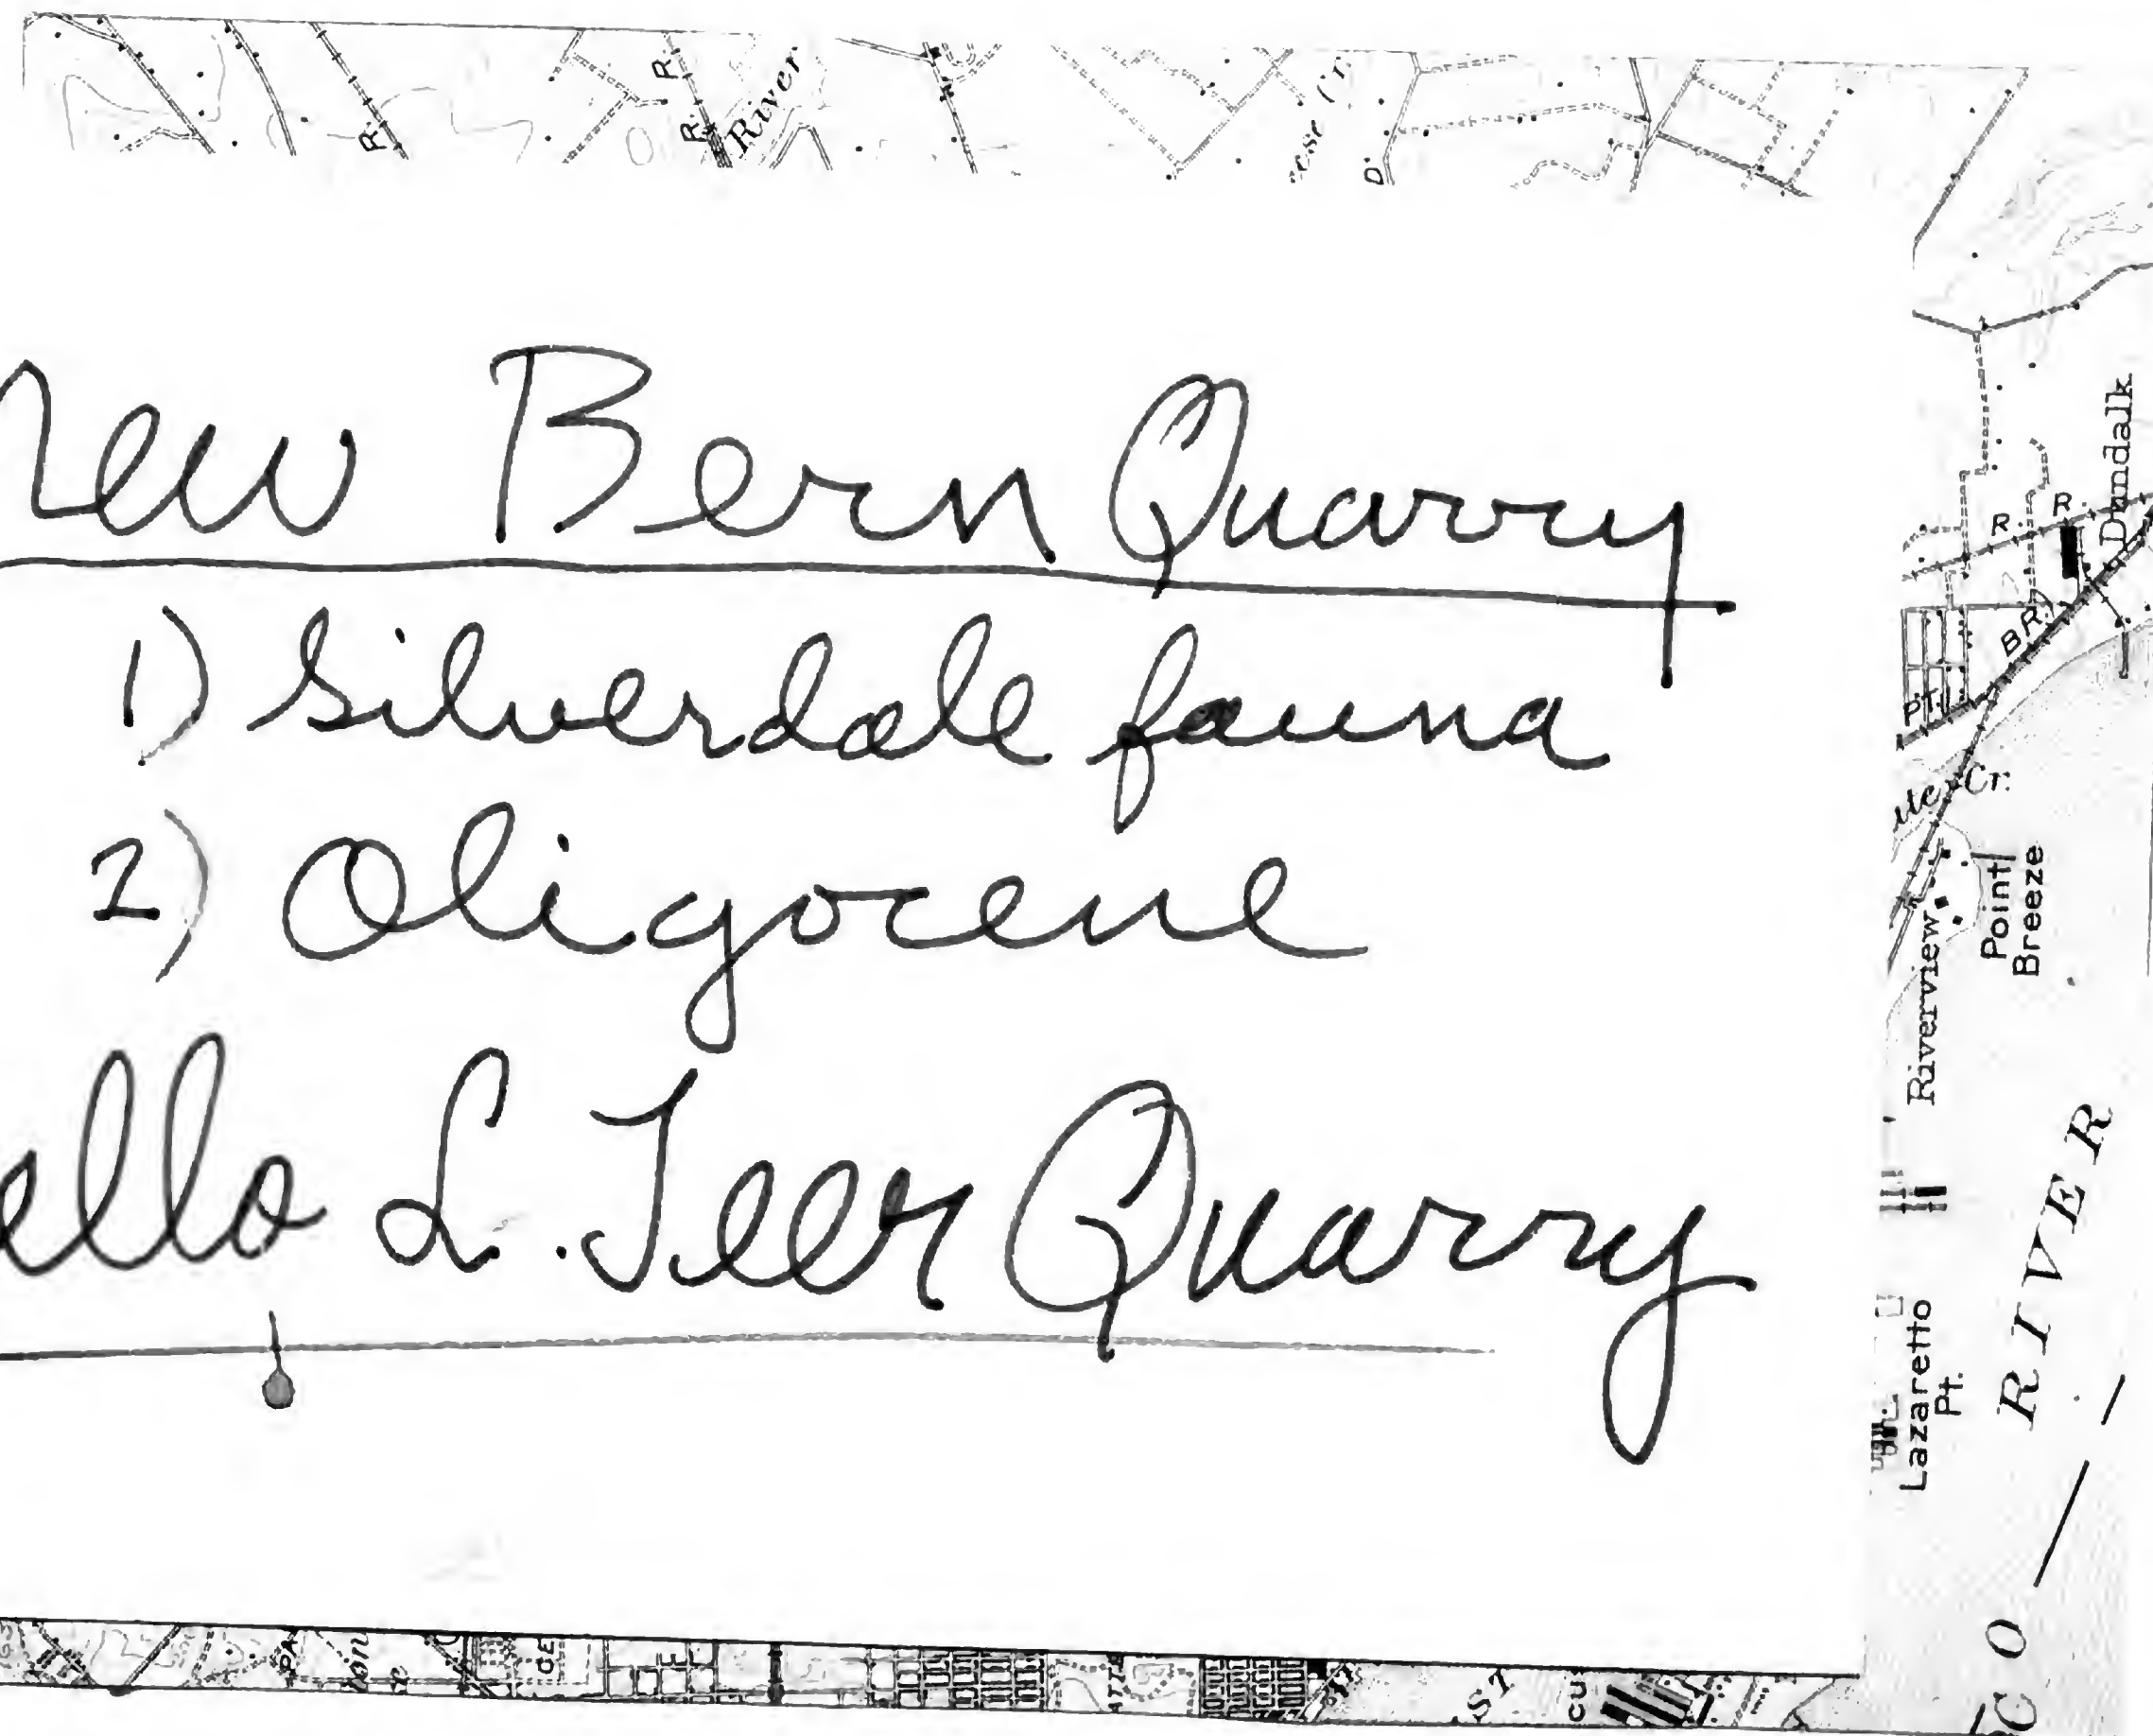 R.
R.
R.
River
D.
New Bern Quarry
1) Silverdale fauna
2) Oligocene
ello L. Teer Quarry
Dundalk
R.
R.
BR.
PT.
Cr.
Point
Breeze
Riverview
RIVER
Lazaretto
Pt.
CO
ST